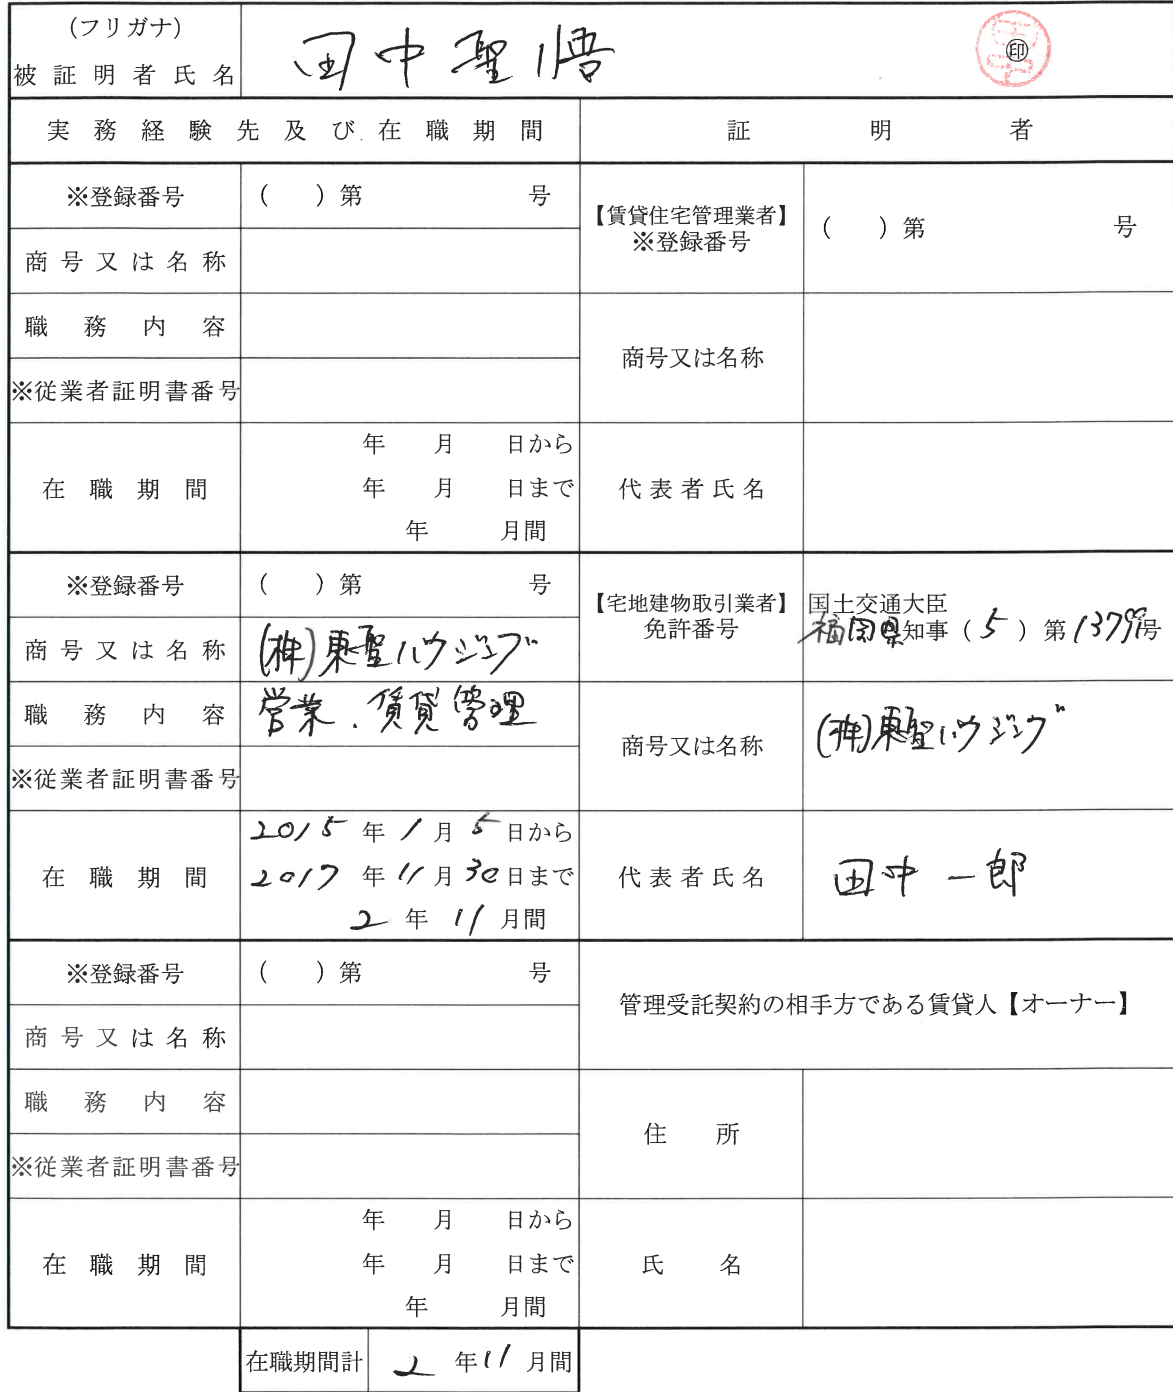 (フリガナ)
被証明者氏名 田中聖悟 ㊞
実務経験先及び在職期間 証明者
※登録番号 ( )第 号 【賃貸住宅管理業者】※登録番号 ( )第 号
商号又は名称
職務内容 商号又は名称
※従業者証明書番号
在職期間 年 月 日から
年 月 日まで 代表者氏名
年 月間
※登録番号 ( )第 号 【宅地建物取引業者】免許番号 国土交通大臣
福岡県知事(5)第 号
商号又は名称 (株)東聖ハウジング
職務内容 営業.賃貸管理 商号又は名称 (株)東聖ハウジング
※従業者証明書番号
在職期間 2015年1月5日から
2017年11月30日まで 代表者氏名 田中一郎
2年11月間
※登録番号 ( )第 号 管理受託契約の相手方である賃貸人【オーナー】
商号又は名称
職務内容 住所
※従業者証明書番号
在職期間 年 月 日から
年 月 日まで 氏名
年 月間
在職期間計 2年11月間